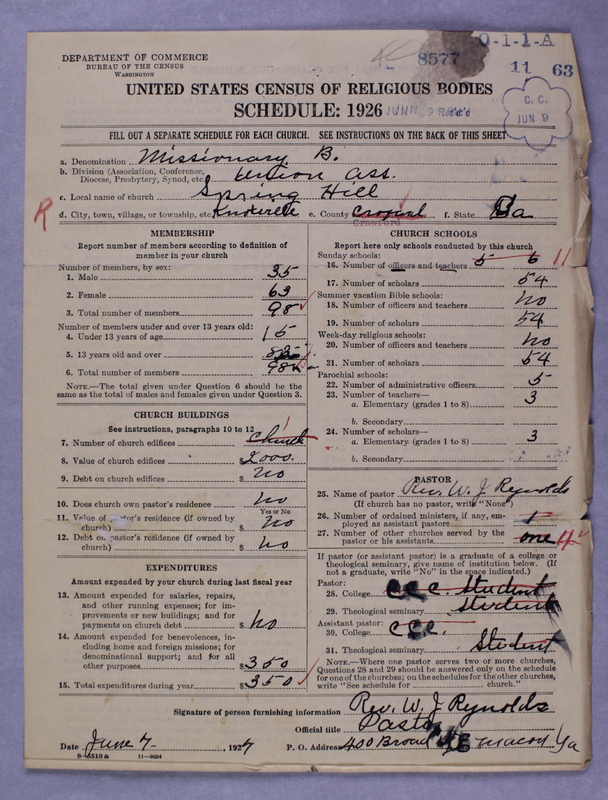 DEPARTMENT OF COMMERCE
BUREAU OF THE CENSUS
WASHINGTON
8577
0-1-1-A
11 63
C. C.
JUN 9
UNITED STATES CENSUS OF RELIGIOUS BODIES
SCHEDULE: 1926
FILL OUT A SEPARATE SCHEDULE FOR EACH CHURCH. SEE INSTRUCTIONS ON THE BACK OF THIS SHEET
a. Denomination Missionary B.
b. Division (Association, Conference, Diocese, Presbytery, Synod, etc. Union Ass.
c. Local name of church Spring Hill
R
d. City, town, village, or township, etc. e. County Crawford f. State Ga
MEMBERSHIP
Report number of members according to definition of
member in your church
Number of members, by sex:
1. Male 35
2. Female 63
3. Total number of members 98
Number of members under and over 13 years old:
4. Under 13 years of age 15
5. 13 years old and over
6. Total number of members 98
NOTE.—The total given under Question 6 should be the
same as the total of males and females given under Question 3.
CHURCH BUILDINGS
See instructions, paragraphs 10 to 12
7. Number of church edifices church 1
8. Value of church edifices $2000.
9. Debt on church edifices $ no
10. Does church own pastor's residence no
Yes or No
11. Value of pastor's residence (if owned by
church) $ no
12. Debt on pastor's residence (if owned by
church) $ no
EXPENDITURES
Amount expended by your church during last fiscal year
13. Amount expended for salaries, repairs,
and other running expenses; for im-
provements or new buildings; and for
payments on church debt $ no
14. Amount expended for benevolences, in-
cluding home and foreign missions; for
denominational support; and for all
other purposes $350
15. Total expenditures during year $350
CHURCH SCHOOLS
Report here only schools conducted by this church
Sunday schools:
16. Number of officers and teachers 5 6 11
17. Number of scholars 54
Summer vacation Bible schools:
18. Number of officers and teachers no
19. Number of scholars 54
Week-day religious schools:
20. Number of officers and teachers no
21. Number of scholars 54
Parochial schools:
22. Number of administrative officers 5
23. Number of teachers—
a. Elementary (grades 1 to 8) 3
b. Secondary
24. Number of scholars—
a. Elementary (grades 1 to 8) 3
b. Secondary
PASTOR
25. Name of pastor Rev. W. J. Reynolds
(If church has no pastor, write "None")
26. Number of ordained ministers, if any, em-
ployed as assistant pastors 1
27. Number of other churches served by the
pastor or his assistants one
If pastor (or assistant pastor) is a graduate of a college or
theological seminary, give name of institution below. (If
not a graduate, write "No" in the space indicated.)
Pastor:
28. College C.C.C. Student
29. Theological seminary Student
Assistant pastor:
30. College C.C.C.
31. Theological seminary Student
NOTE.—Where one pastor serves two or more churches,
Questions 28 and 29 should be answered only on the schedule
for one of the churches; on the schedules for the other churches,
write "See schedule for church."
Signature of person furnishing information Rev. W. J. Reynolds
Official title Pastor
Date June 7, 1927 P. O. Address 400 Broad Macon Ga
8-5518a 11-9084